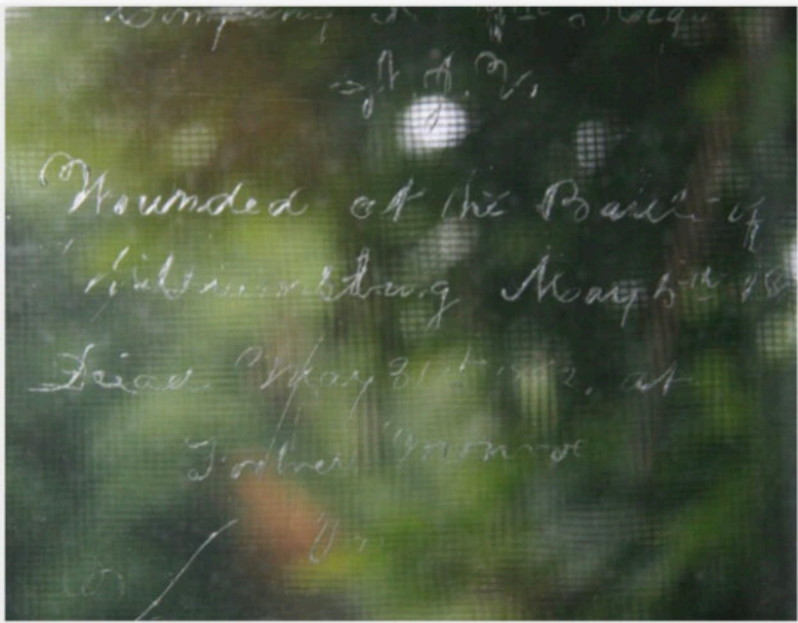 Company
N.Y.V.
Wounded at the Battle of
Williamsburg May 5th
Died May 31st 1862, at
Fortress Monroe
Va